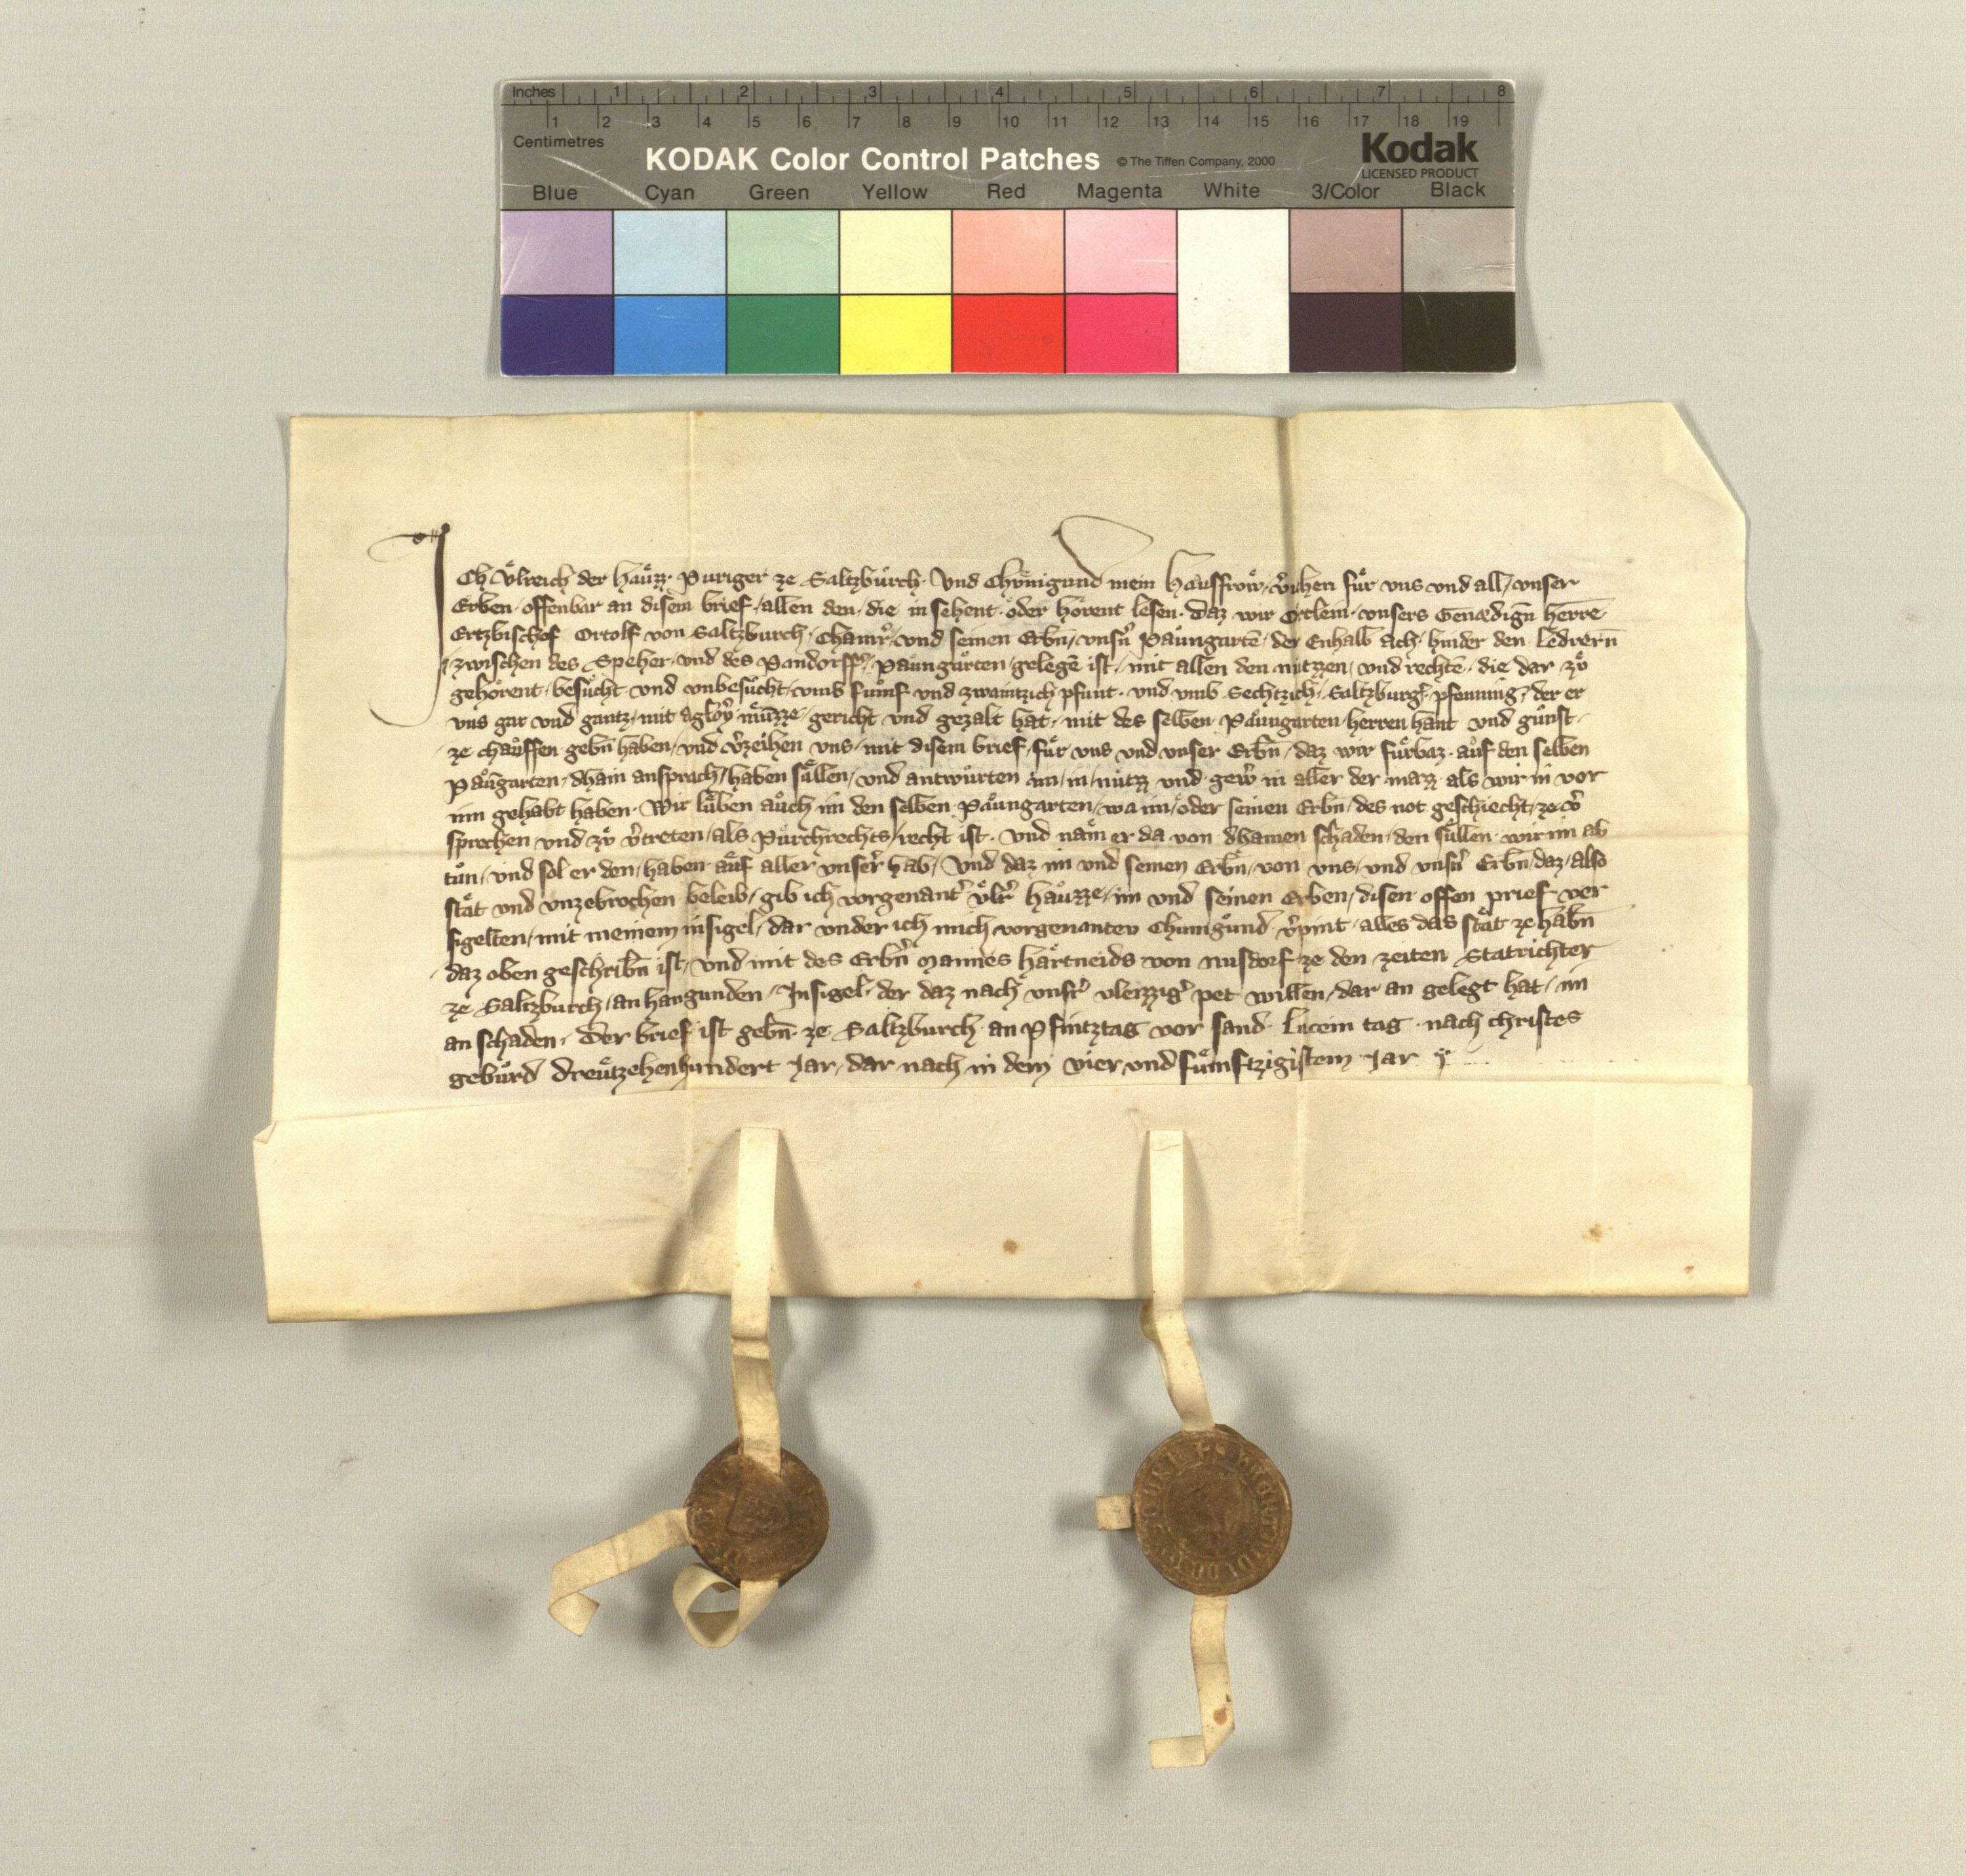 Inches 1 2 3 4 5 6 7 8
1 2 3 4 5 6 7 8 9 10 11 12 13 14 15 16 17 18 19
Centimetres
KODAK Color Control Patches © The Tiffen Company, 2000 Kodak
LICENSED PRODUCT
Blue Cyan Green Yellow Red Magenta White 3/Color Black
Ich Ůlreich der Haůzz Puriger ze Saltzburch Vnd Chůnigund mein Hausfrow v̾iehen fůr vns vnd all vnser
Erben offenbar an disem brief allen den die in sehent oder hôrent lesen daz wir Ôrtlein vnsers Genædign̄ herre̅
Ertzbischof Ortolf von Saltzburch Cham̾r vnd seinen Erbn̄ vnsn̾ Paůngarte̅ der Enhalb ach hinder den Ledrern̄
zwischen des Speher vnd des Pandorff̾ Paůngarten gelege̅ ist mit allen den nutzzen vnd rechte̅ die dar zů
gehôrent besůcht vnd vnbesůcht vmb fumf vnd zwaintzich pfunt vnd vmb Sechtzich Saltzburg̾ pfenning der er
vns gar vnd gantz mit mu̅zze gericht vnd gezalt hat mit des selben Paůngarten herren hant vnd gůnst
ze chauffen gebn̄ haben vnd v̾zeihen vns mit disem brief fůr vns vnd vnser Erbn̄ daz wir fůrbaz auf den selben
Paůngarten dhain ansprach haben sůllen vnd antwůrten im in nutz vnd gew̾ in aller der mazz als wir in vor
inn gehabt haben Wir lůben auch im den selben Paůngarten wa im oder seinen Erbn̄ des not geschiecht ze v̾
sprechen vnd zů v̾treten als Purchrechts recht ist Vnd nåm er da von dhainen schaden den sůllen wir im ab
tůn vnd sol er den haben auf aller vnser̾ hab Vnd daz im vnd seinen Erbn̄ von vns vnd vnsn̾ Erbn̄ daz also
ståt vnd vnzebrochen beleib gib ich vorgenant̾ Ůlr̾ Haůzze im vnd seinen Erben disen offen prief ver
sigelten mit meinem insigel dar vnder ich mich vorgenanten Chunigund v̾pint alles das ståt ze habn̄
daz oben geschribn̄ ist vnd mit des Erbn̾ mannes Hårtneids von Nusdorf ze den zeiten Statrichter
ze Saltzburch anhangunden Insigel der daz nach vnsr̾ vleizzig̾ pet willen dar an gelegt hat im
an schaden Der brief ist gebn̄ ze Saltzburch an Pfintztag vor sand Lucein tag nach christes
gebůrd dreůtzehenhundert Jar dar nach in dem vier vnd fůmftzigistem Jar